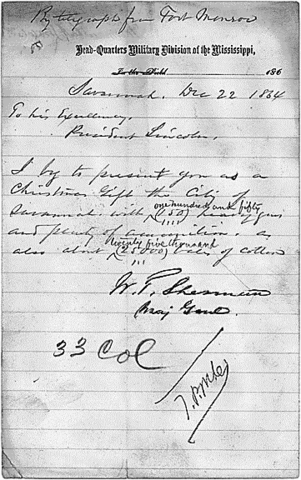 By telegraph from Fort Monroe
Head-Quarters Military Division of the Mississippi,
In the Field 186
Savannah, Dec 22 1864
To his Excellency,
President Lincoln.
I beg to present you as a
Christmas Gift the City of
one hundred and fifty
Savannah with (150) heavy guns
and plenty of ammunition & as
twenty five thousand
also about (25000) bales of cotton
W. T. Sherman
Maj Genl.
33 Col